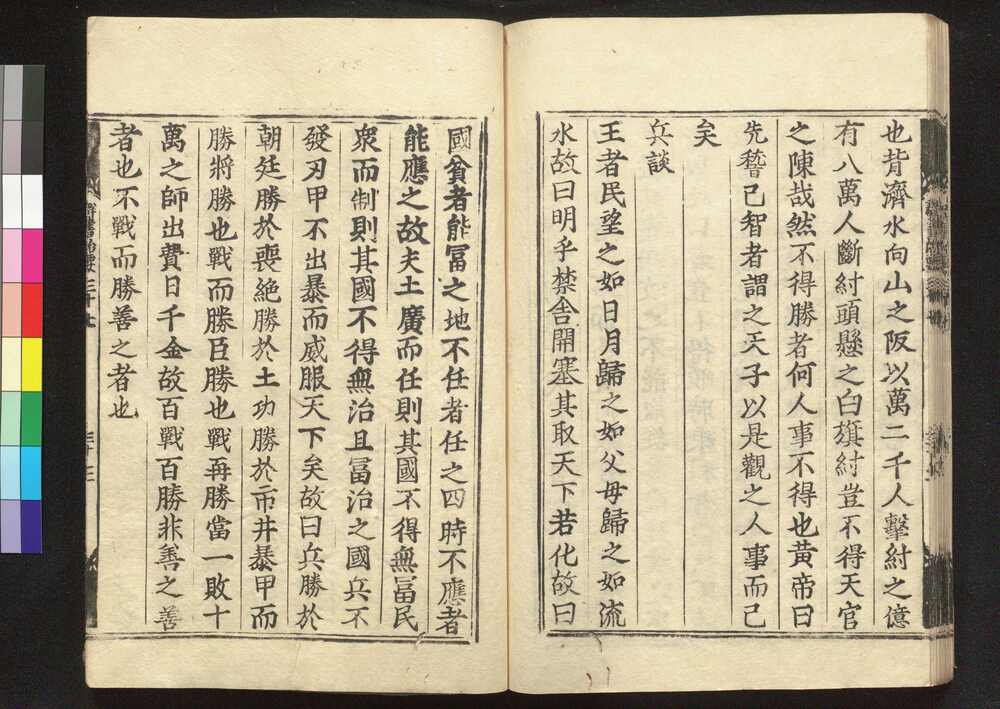 也背濟水向山之阪以萬二千人擊紂之億
有八萬人斷紂頭懸之白旗紂豈不得天官
之陳哉然不得勝者何人事不得也黃帝曰
先稽己智者謂之天子以是觀之人事而已
矣
兵談
王者民望之如日月歸之如父母歸之如流
水故曰明乎禁舍開塞其取天下若化故曰
國貧者能冨之地不任者任之四時不應者
能應之故夫土廣而任則其國不得無冨民
衆而制則其國不得無治且冨治之國兵不
發刃甲不出暴而威服天下矣故曰兵勝於
朝廷勝於喪絶勝於土功勝於市井暴甲而
勝將勝也戰而勝臣勝也戰再勝當一敗十
萬之師出費日千金故百戰百勝非善之善
者也不戰而勝善之者也
三十七
三十三